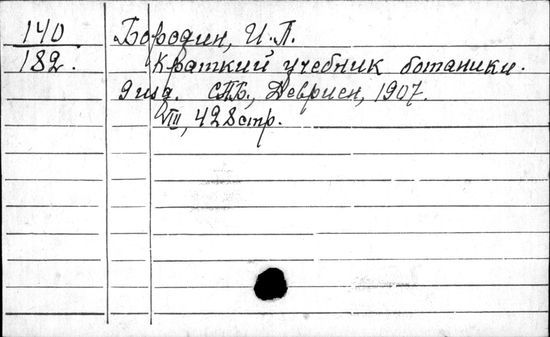 140 Бородин, И. П.
182. Краткий учебник ботаники.
9 изд. СПб., Девриен, 1907.
VIII, 428 стр.